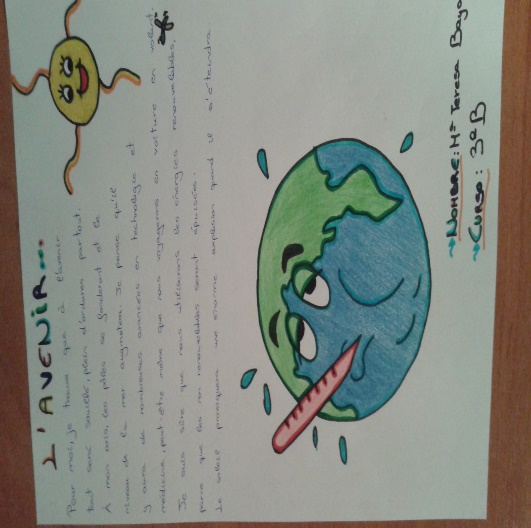 L'AVENIR...
Pour moi, je trouve que à l'avenir
tout sera souillé, plein d'ordures partout.
A mon avis, les pôles se fonderont et le
niveau de la mer augmentera. Je pense qu'il
y aura de nombreuses avancées en technologie et
médicine, peut-être même que nous voyagerons en voiture en volant.
Je suis sûre que nous utiliserons les énergies renouvelables,
parce que les non renouvelables seront épuisées.
Le soleil provoquera une énorme explosion quand il s'éteindra.
→NOMBRE: Mª Teresa Bayo
→CURSO: 3ºB